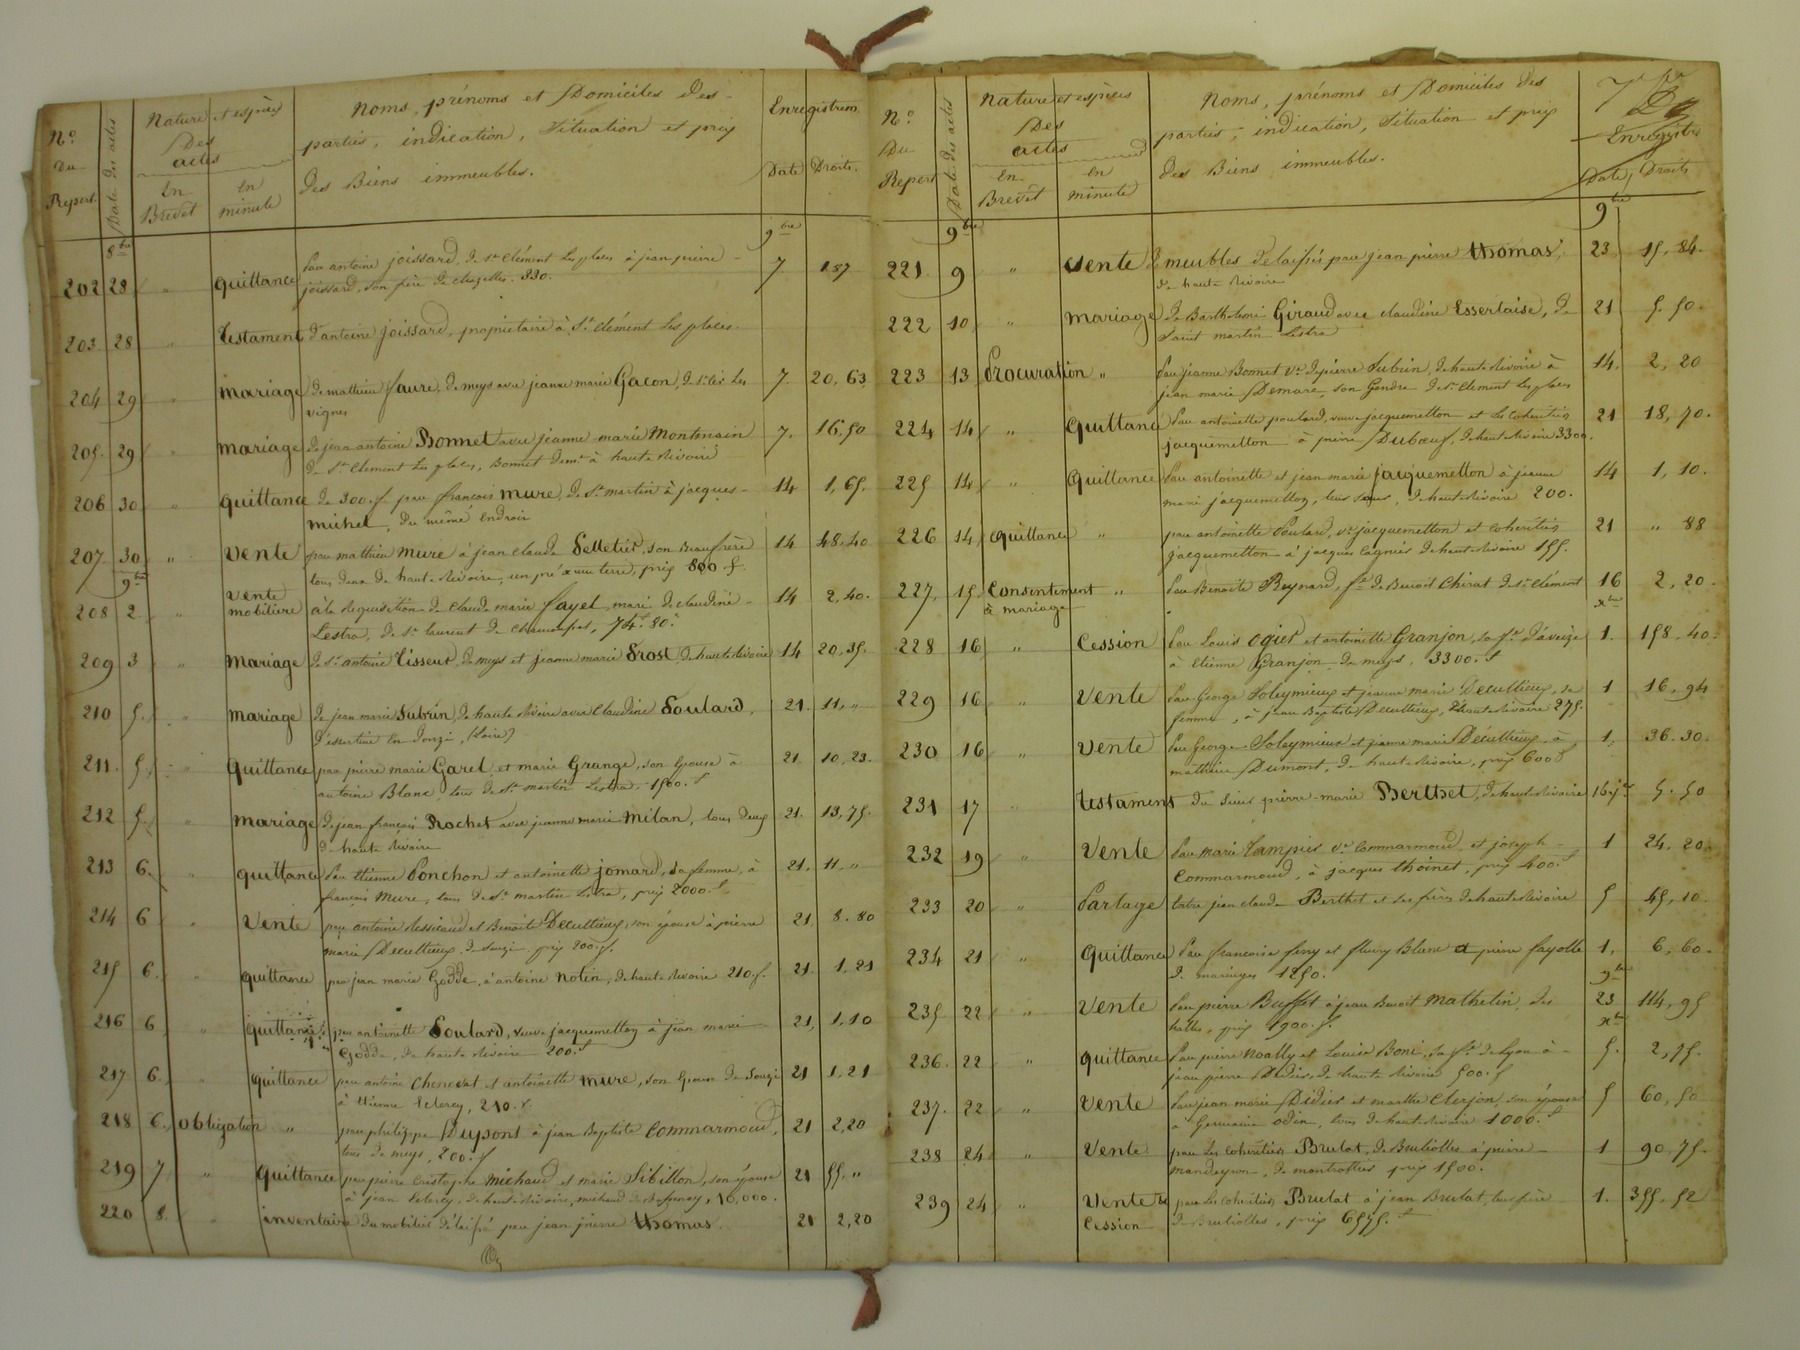 N.o Du Repert. Date des actes Nature et espèces Des actes En Brevet En minute
Noms, prénoms et Domiciles des
parties, indication, Situation et prix
des Biens immeubles.
Enregistrem Date Droits.
8bre 9bre
202 28 " quittance par antoine joissard, de St Clément les places à jean pierre 7 1.87
joissard, son père de chazelles. 830.
203. 28 " testament d'antoine joissard, propriétaire à St Clément les places.
204 29 " mariage de mathieu faure, de meys avec jeanne marie Gacon, de St les 7. 20,63
vignes
205. 29 " mariage de jean antoine Bonnet avec jeanne marie Montmain 7. 16,50
de St Clement les places, Bonnet demt à haute Rivoire
206 30 " quittance de 300.f par françois mure, de St martin à jacques 14 1,65.
michel, du même Endroit
207 30 " Vente par mathieu mure à jean claude Pelletier, son Beaufrère 14 48.40
tous deux de haute Rivoire, un pré & une terre, prix 800 f.
9bre
208 2 " Vente mobilière à la Requisition de claude marie fayet, mari de claudine 14 2,40.
Lestra, de St laurent de chamousset, 74.f 80.c
209 3 " mariage de St antoine Tisseur, de meys et jeanne marie Prost de haute Rivoire 14 20.35.
210 5. " mariage de jean marie Subrin, de haute Rivoire avec Claudine Poulard, 21. 11,"
D'essertine En Donzi, (Loire)
211. 5. " Quittance par pierre marie Garel et marie Grange, son Epouse à 21. 10,23.
antoine Blanc, tous de St martin Lestra, 1500.f
212 5. " mariage de jean françois Rochet avec jeanne marie Milan, tous deux 21. 13,75.
de haute Rivoire
213 6. " quittance Par Etienne Ponchon et antoinette jomard, sa femme, à 21. 11,"
françois Mure, tous de St martin Lestra, prix 2000.f
214 6 " Vente par antoine et Benoite Decultieux, son épouse à pierre 21 8.80
marie Decultieux de Souzi prix 200.f.
215 6. " quittance par jean marie Godde, à antoine Notin, de haute Rivoire 210.f. 21. 1,21
216 6 " quittance par antoinette Poulard, veuve jacquemetton à jean marie 21, 1,10
Godde, de haute Rivoire 200.f
217 6. " quittance par antoine Chenevat et antoinette mure, son Epouse de Souzi 21 1,21
à Etienne Leclercq, 210.f.
218 6. obligation " par philippe Dupont à jean Baptiste Commarmond, 21 2,20
tous de meys, 200.f
219 7 " Quittance par pierre Cristophe michaud et marie Sibillon, son épouse 21 55,"
à jean Leclercq, de haute Rivoire, michaud de Bessenay, 10,000.
220 8 " inventaire du mobilier délaissé par jean pierre thomas. 21 2,20
N.o Du Repert Date des actes Nature et espèces Des actes En Brevet En minute
Noms, prénoms et Domiciles des
parties, indication, Situation et prix
des Biens immeubles.
Enregistre Date, Droits
9bre 9bre
221 9 " Vente de meubles delaissés par jean pierre thomas, 23, 15,84.
de haute Rivoire
222 10 " mariage de Barthelemi Giraud avec claudine Essertaise, de 21 5.50.
Saint martin Lestra
223 13 Procuration " Par jeanne Bonnet Ve de pierre Subrin, de haute Rivoire à 14. 2,20
jean marie Demare, son Gendre de St Clement les places
224 14 " Quittance Par antoinette poulard, veuve jacquemetton et les cohéritiers 21 18,70.
jacquemetton à pierre Duboeuf, de haute Rivoire 3300.
225 14 " Quittance Par antoinette et jean marie jacquemetton à jeanne 14 1,10.
marie jacquemetton, leur soeur, de haute Rivoire 200.
226 14 quittance " par antoinette Poulard, Ve jacquemetton et cohéritiers 21 " 88
jacquemetton à jacques Cagnier de haute Rivoire 155.
227. 15 Consentement à mariage " Par Benoite Reynard, fe de Benoit Chirat de St Clément 16 2,20.
xbre
228 16 " Cession Par Louis Ogier et antoinette Granjon, sa fe d'aveize 1. 158.40.
à Etienne Granjon de meys, 3300.f
229 16 " Vente Par George Soleymieux et jeanne marie Decultieux, sa 1 16,94
femme, à jean Baptiste Decultieux, de haute Rivoire 275.
230 16 " Vente Par George Soleymieux et jeanne marie Decultieux à 1. 36.30.
mathieu Dumont, de haute Rivoire, prix 600f
231 17 " testament du Sieur pierre marie Berthet, de haute Rivoire 16 5.50
232 19 " Vente Par Marie Tampier Ve Commarmond et joseph 1 24.20.
Commarmond, à jacques thoinet, prix 400.f
233 20 " Partage Entre jean claude Berthet et ses frères de haute Rivoire 5 45,10.
234 21 " Quittance Par francoise ferry et fleury Blanc à pierre fayolle 1, 6,60.
de maringes 1250.
9bre
235 22 " Vente Par pierre Buffet à jean Benoit Mathelin, des 23 114,95
halles, prix 1900.f.
xbre
236. 22 " Quittance Par pierre Noally et Louise Boni, sa fe de Lyon à 5. 2,75.
jean pierre Didier, de haute Rivoire 500.f
237. 22 " Vente Par jean marie Didier et marthe Clerjon, son épouse 5 60,50
à Germaine odin, tous de haute Rivoire 1000.f
238 24 " Vente par les cohéritiers Brulat, de Brulioles à pierre 1 90,75.
, de montrottier prix 1500.
239 24 " Vente & Cession par les cohéritiers Brulat à jean Brulat, leur frère 1. 355,52
de Brulioles, prix 6575.f